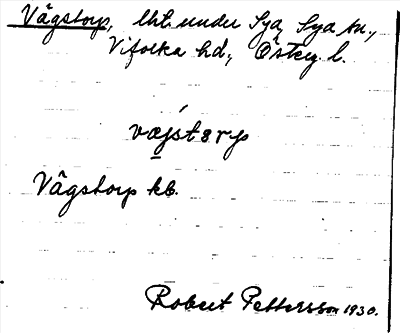 Vågstorp, lht. under Sya, Sya sn.,
Vifolka hd., Österg. l.
vægstɵrp
Vågstorp kb.
Robert Pettersson 1930.